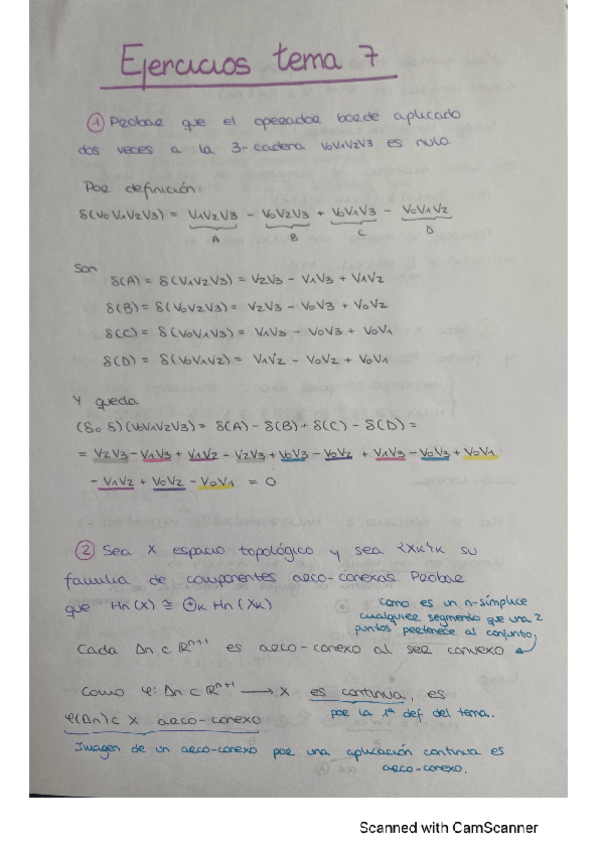 Ejercicios tema 7
① Probar que el operador borde aplicado
dos veces a la 3-cadena V0V1V2V3 es nulo.
Por definición:
δ(V0V1V2V3) = V1V2V3 - V0V2V3 + V0V1V3 - V0V1V2
A B C D
Son
δ(A) = δ(V1V2V3) = V2V3 - V1V3 + V1V2
δ(B) = δ(V0V2V3) = V2V3 - V0V3 + V0V2
δ(C) = δ(V0V1V3) = V1V3 - V0V3 + V0V1
δ(D) = δ(V0V1V2) = V1V2 - V0V2 + V0V1
Y queda
(δ∘δ)(V0V1V2V3) = δ(A) - δ(B) + δ(C) - δ(D) =
= V2V3 - V1V3 + V1V2 - V2V3 + V0V3 - V0V2 + V1V3 - V0V3 + V0V1
- V1V2 + V0V2 - V0V1 = 0
② Sea X espacio topológico y sea {Xk}k su
familia de componentes arco-conexas. Probar
que Hn(X) ≅ ⊕k Hn(Xk)
como es un n-símplice
cualquier segmento que una 2
puntos pertenece al conjunto
Cada Δn ⊂ ℝⁿ⁺¹ es arco-conexo al ser convexo
Como φ: Δn ⊂ ℝⁿ⁺¹ → X es continua, es
por la 1ª def del tema.
φ(Δn) ⊂ X arco-conexo
Imagen de un arco-conexo por una aplicación continua es
arco-conexo.
Scanned with CamScanner